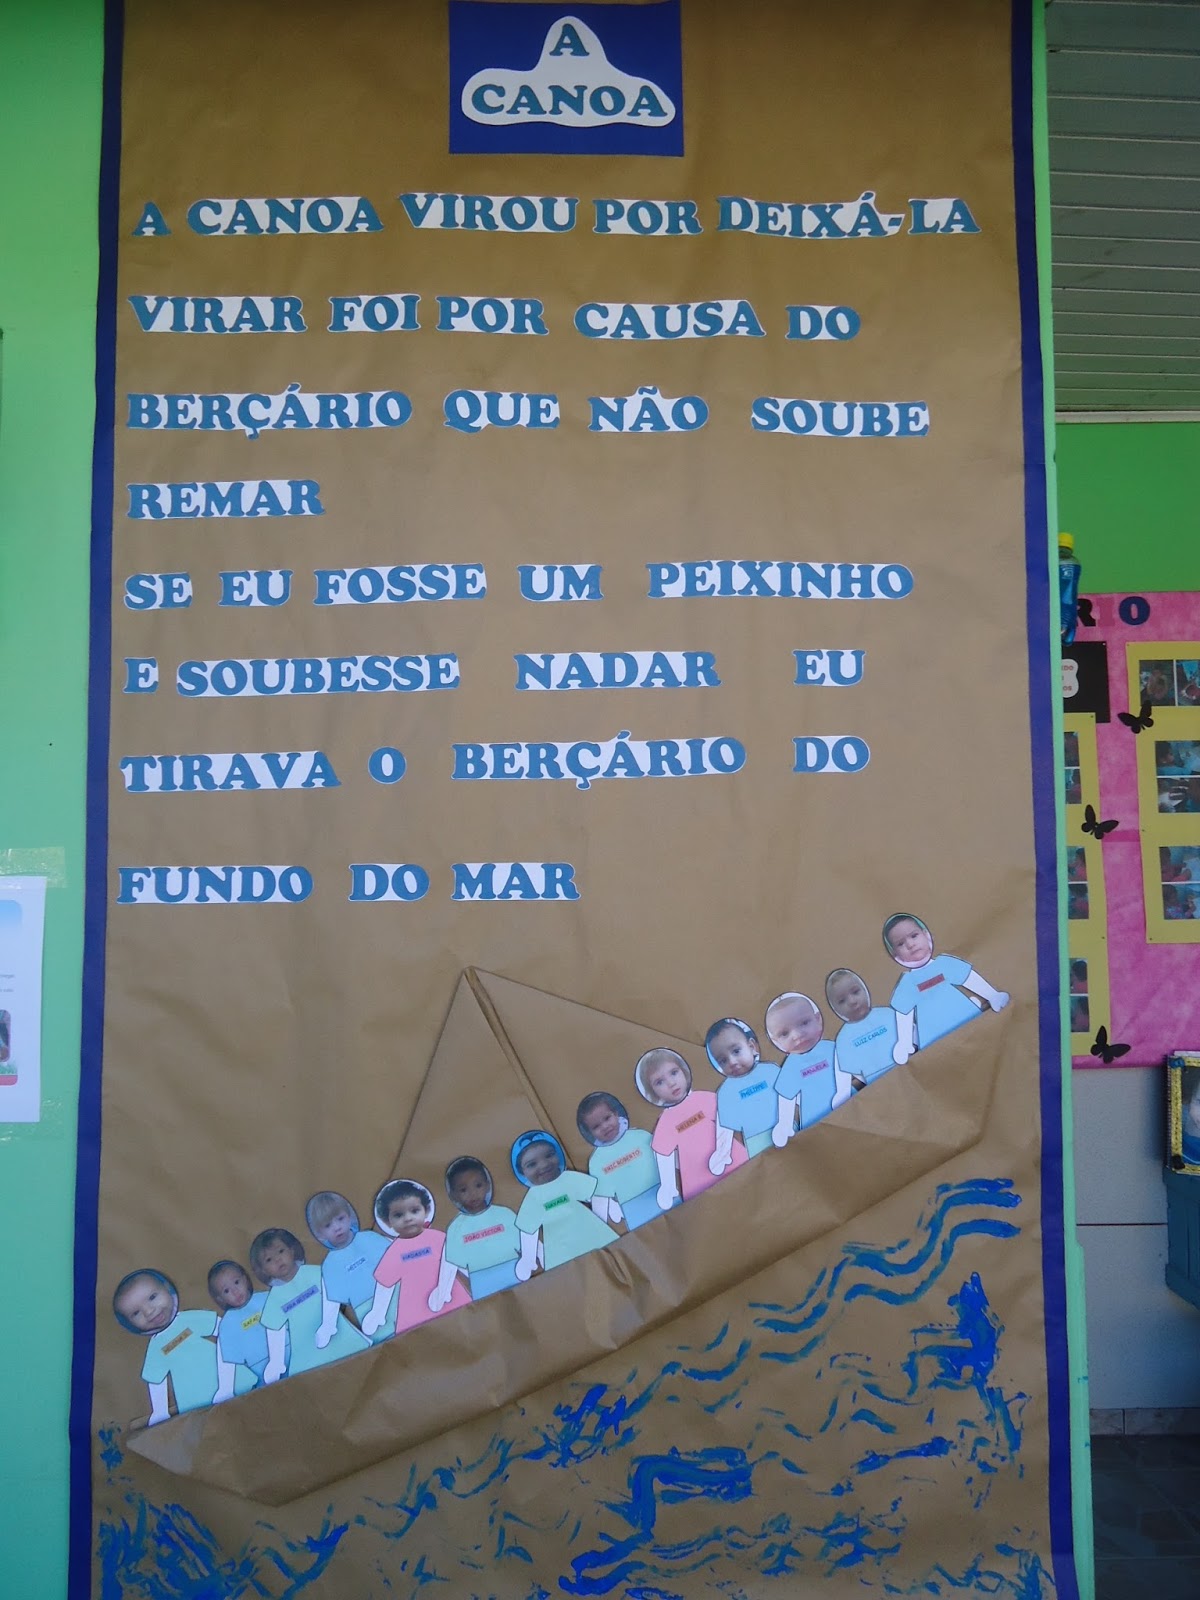 A
CANOA
A CANOA VIROU POR DEIXÁ-LA
VIRAR FOI POR CAUSA DO
BERÇÁRIO QUE NÃO SOUBE
REMAR
SE EU FOSSE UM PEIXINHO
E SOUBESSE NADAR EU
TIRAVA O BERÇÁRIO DO
FUNDO DO MAR
LUIZ CARLOS
HELOISA
ERIC ROBERTO
JOÃO VICTOR
HEITOR